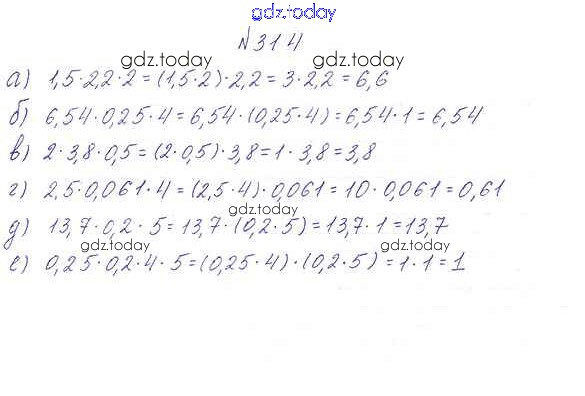 gdz.today
№ 314
gdz.today gdz.today
а) 1,5·2,2·2=(1,5·2)·2,2=3·2,2=6,6
б) 6,54·0,25·4=6,54·(0,25·4)=6,54·1=6,54
в) 2·3,8·0,5=(2·0,5)·3,8=1·3,8=3,8
г) 2,5·0,061·4=(2,5·4)·0,061=10·0,061=0,61
gdz.today
д) 13,7·0,2·5=13,7·(0,2·5)=13,7·1=13,7
gdz.today
е) 0,25·0,2·4·5=(0,25·4)·(0,2·5)=1·1=1
gdz.today gdz.today